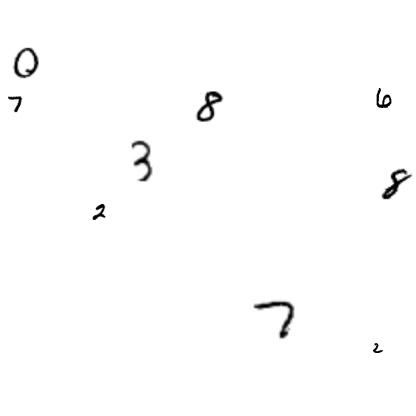 0
7 8 6
3
8
2
7
2